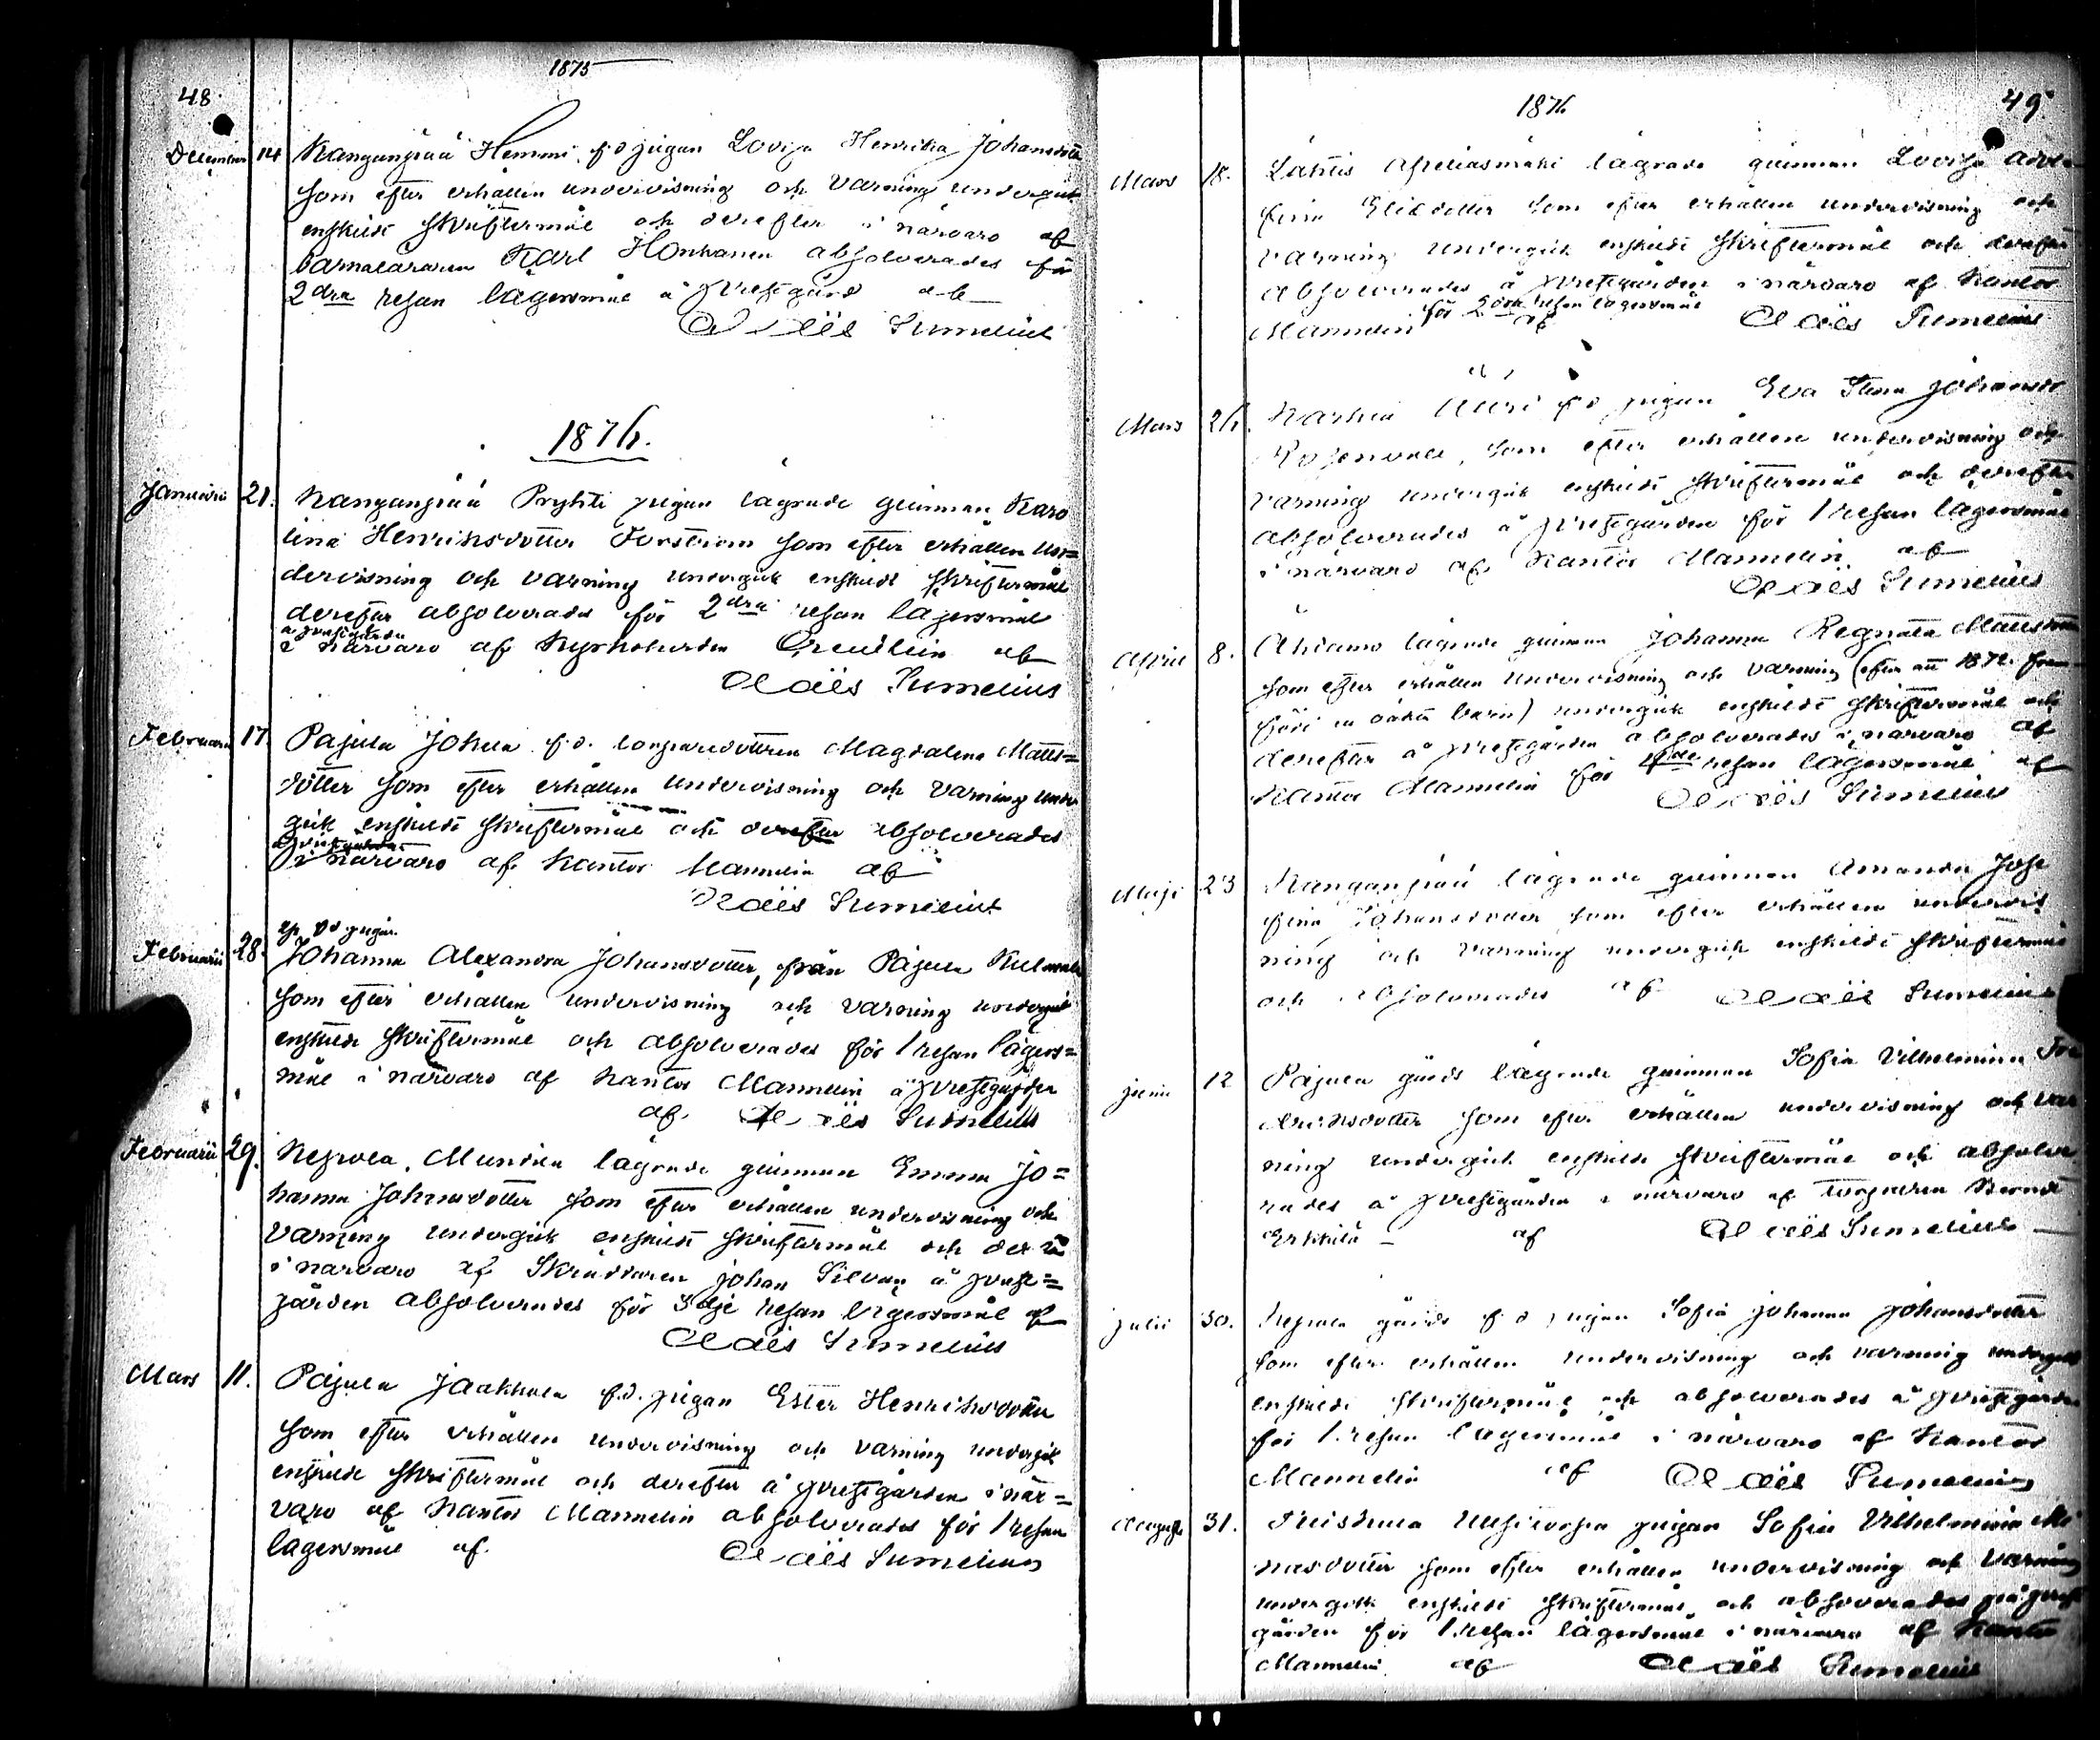 1875
48
December 14 Kanganpää Hemmi f.d pigan Lovisa Henrika Johansdotter
som efter erhållen undervisning och varning undergick
enskildt skriftermål och derefter i närvaro af
barnaläraren Karl Honkanen absolverades för
2dra resan lägersmål å prestgård af
Claës Sumelius
1876.
Januarii 21. Kanganpää Pryhti pigan lägrade qvinnan Karo
lina Henriksdotter Forsström som efter erhållen un=
dervisning och varning undergick enskildt skriftermål
derefter absolverades för 2dra resan lägersmål
å prestgården
i närvaro af Kyrkoherden af
Claës Sumelius
Februarii 17. Pajula Johela f.d. torparedottren Magdalena Matts=
dotter som efter erhållen undervisning och varning under
gick enskildt skriftermål och derefter absolverades
å prestgården
i närvaro af Kantor Mannelin af
Claës Sumelius
f.d pigan
Februarii 28. Johanna Alexandra Johansdotter, från Pajula
som efter erhållen undervisning och varning undergick
enskildt skriftermål och absolverades för 1 resan lägers=
mål i närvaro af Kantor Mannelin å prestgården
af Claës Sumelius
Februarii 29. Kepola Mundila lägrade qvinnan Emma Jo=
hanna Johansdotter som efter erhållen undervisning och
varning undergick enskildt skriftermål och
i närvaro af Skräddaren Johan Silvan å prest=
gården absolverades för 3dje resan lägersmål af
Claës Sumelius
Mars 11. Pajula Jaakkola f.d. pigan Ester Henriksdotter
som efter erhållen undervisning och varning undergick
enskildt skriftermål och derefter å prestgården i när=
varo af Kantor Mannelin absolverades för 1 resan
lägersmål af. Claës Sumelius
1876
49
Mars 18. Lähtis lägrade qvinnan Lovisa
fina dotter som efter erhållen undervisning och
varning undergick enskildt skriftermål och derefter
absolverades å prestgården i närvaro af Kantor
Mannelin för 2dra resan lägersmål af Claës Sumelius
Mars 26. Karhia f.d pigan Eva Stina Johansdr
Rosenvall, som efter erhållen undervisning och
varning undergick enskildt skriftermål och derefter
absolverades å prestgården för 1 resan lägersmål
i närvaro af Kantor Mannelin af
Claës Sumelius
April 8. lägrade qvinnan Johanna Regnata Mattsdotter
som efter erhållen undervisning och varning (efter att 1872. fram
födt barn) undergick enskildt skriftermål och
derefter å prestgården absolverades i närvaro af
Kantor Mannelin för resan lägersmål af
Claës Sumelius
Maji 23 Kanganpää lägrade qvinnan Amanda Jose
fina Johansdotter som efter erhållen undervis
ning och varning undergick enskildt skriftermål
och absolverades af Claës Sumelius
Junii 12 Pajula gårds lägrade qvinnan Sofia Vilhelmina Fre
driksdotter som efter erhållen undervisning och var
ning undergick enskildt skriftermål och absolve
rades å prestgården i närvaro af torparen
Erkkilä af Claës Sumelius
Julii 30. Kepola gårds f.d pigan Sofia Johanna Johansdotter
som efter erhållen undervisning och varning undergick
enskildt skriftermål och absolverades å prestgården
för 1 resan lägersmål i närvaro af Kantor
Mannelin af Claës Sumelius
August 31. pigan Sofia Vilhelmina Mi
nasdotter som efter erhållen undervisning och varning
undergick enskildt skriftermål och absolverades på prest
gården för 1 resan lägersmål i närvaro af Kantor
Mannelin af Claës Sumelius